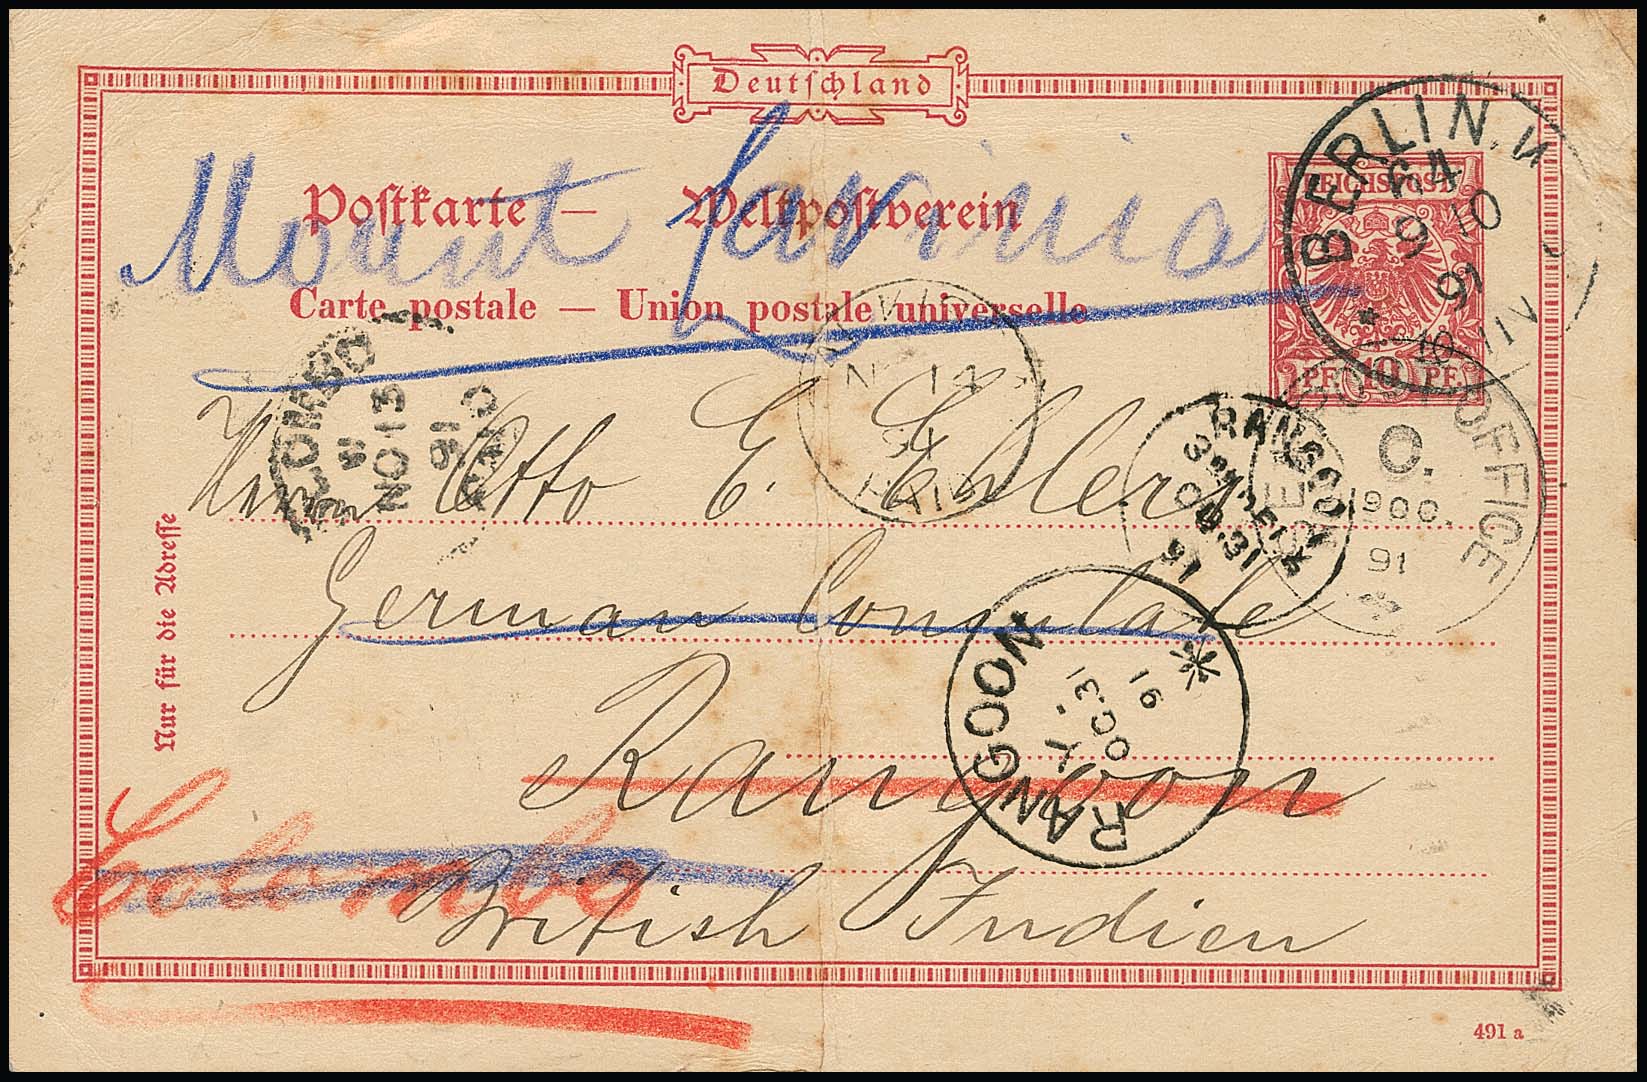 Deutschland
Postkarte — Weltpostverein
Carte postale — Union postale universelle
Mount Lavinia
REICHSPOST
PF. 10 PF.
BERLIN, W
64
9 10
91
10-11V
COLOMBO
NO 13
91
NO 14
91
PAID
Herrn Otto E. Ehlers
German Consulate
Rangoon
British Indien
Colombo
Nur für die Adresse
RANGOON
OC.31
91
RANGOON
OC.31
91
POST OFFICE
O.
900.
91
491 a